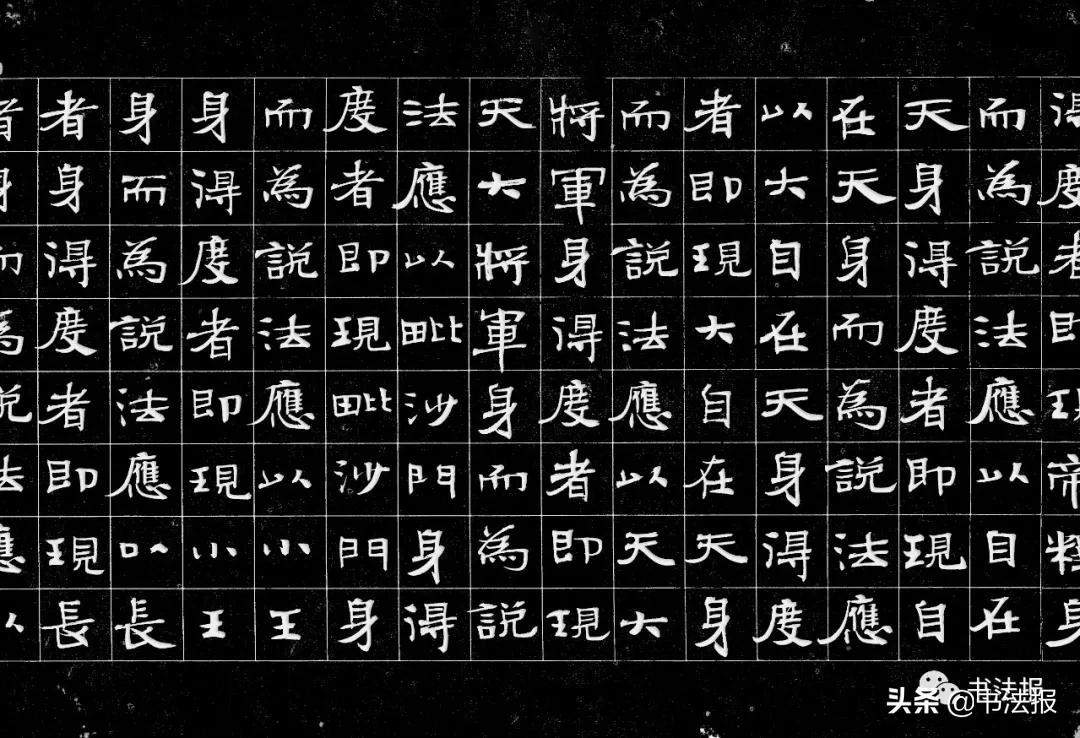 得度者即現帝釋身
而為說法應以自在
天身得度者即現自
在天身而為說法應
以大自在天身得度
者即現大自在天身
而為說法應以天大
將軍身得度者即現
天大將軍身而為說
法應以毗沙門身得
度者即現毗沙門身
而為說法應以小王
身得度者即現小王
身而為說法應以長
者身得度者即現長
者身而為說法應以
书法报
头条 @书法报